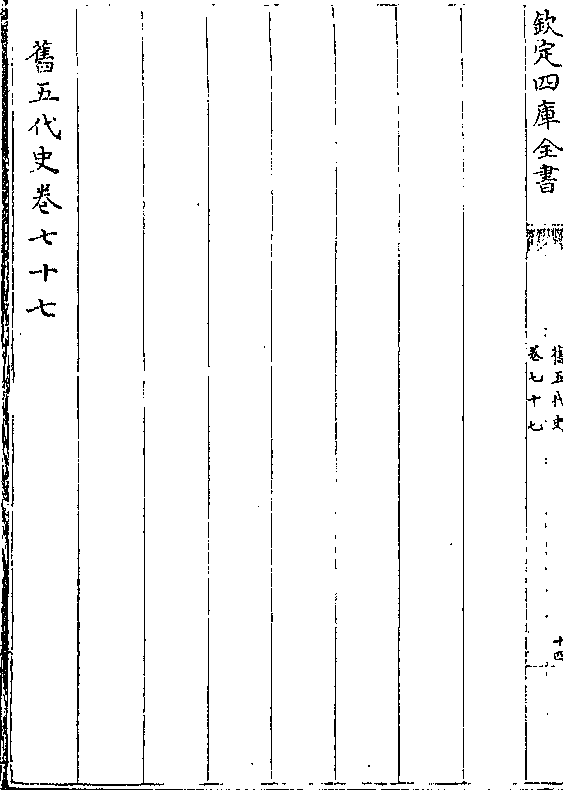 欽定四庫全書
舊五代史
卷七十七
十四
舊五代史卷七十七